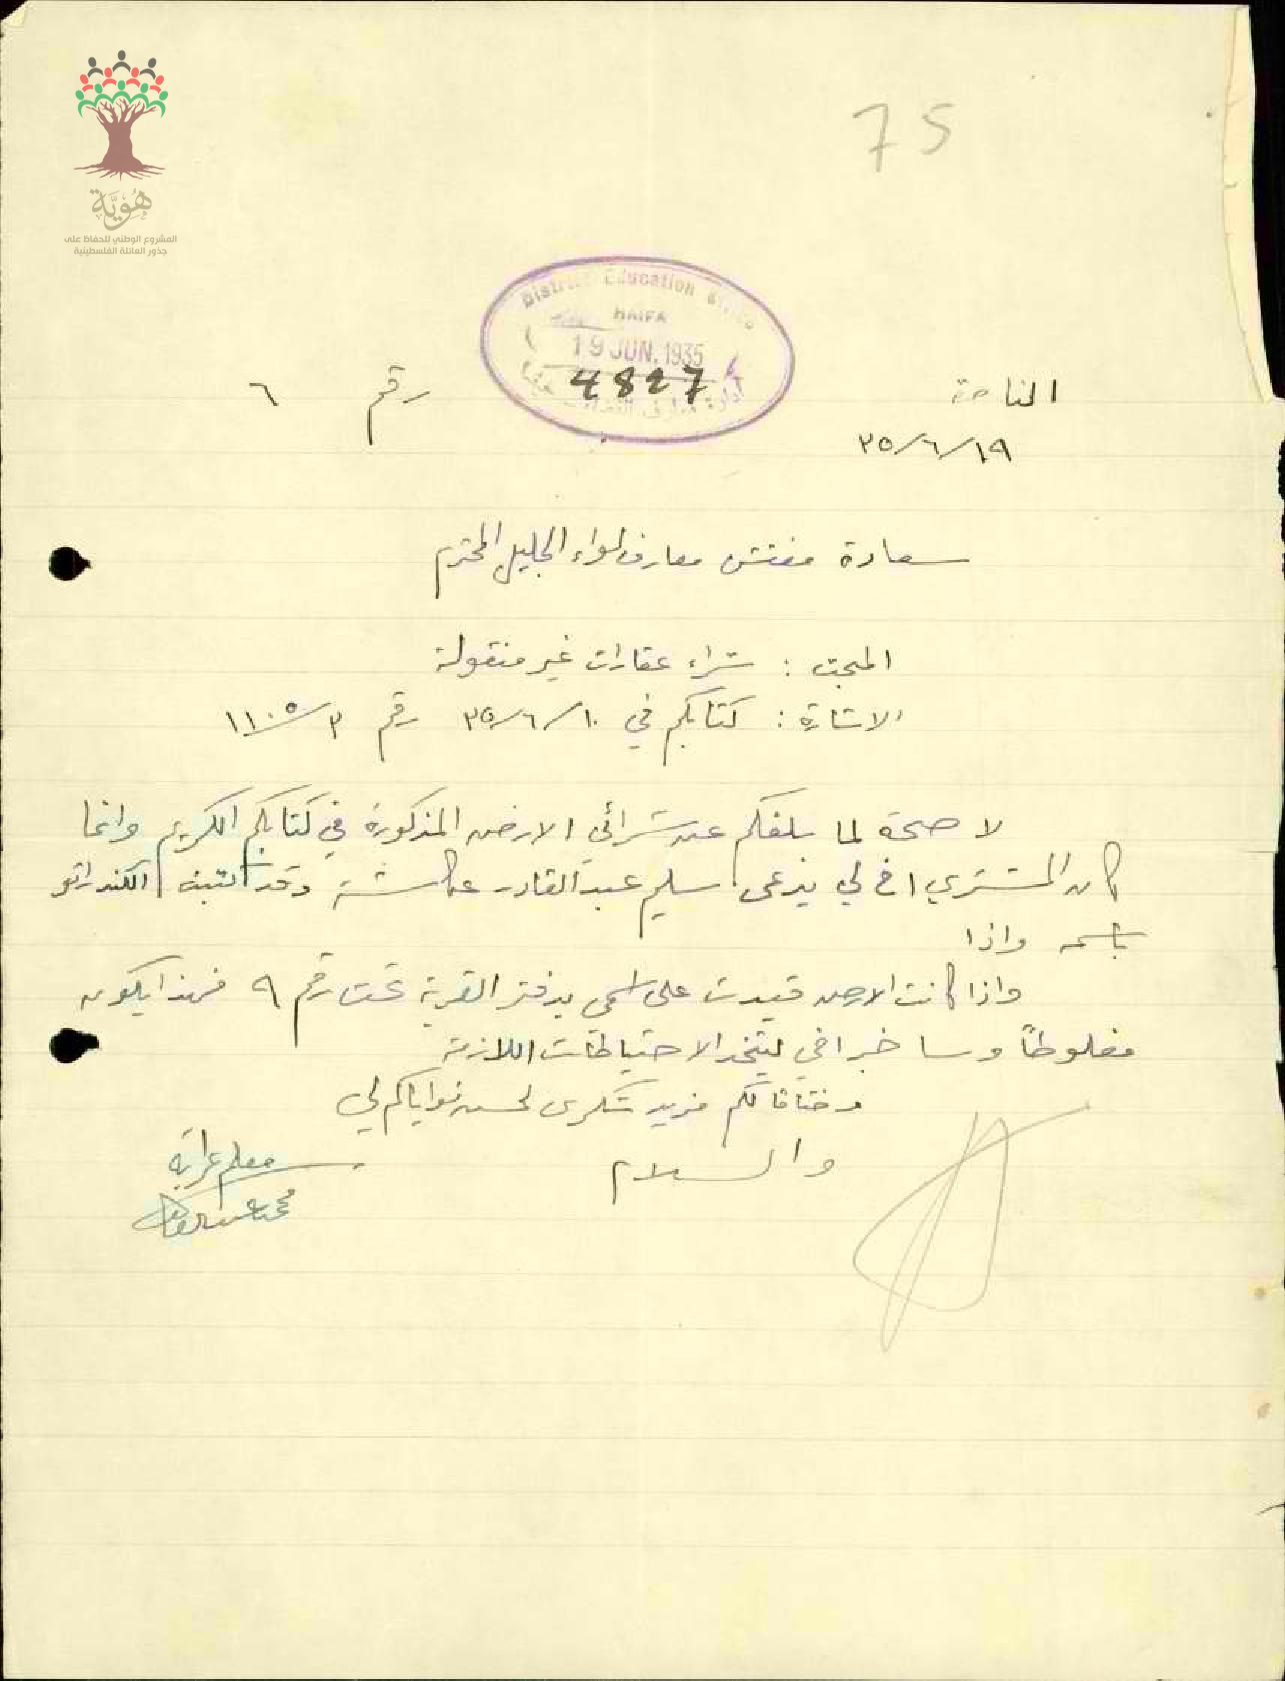 75
هوية
المشروع الوطني للحفاظ على
جذور العائلة الفلسطينية
District Education Office
HAIFA
19 JUN. 1935
4827
رقم ٦
١٩/٦/٣٥
سعادة مفتش معارف لواء الجليل المحترم
المبحث : شراء عقارات غير منقولة
الاشارة : كتابكم في ١٠/٦/٣٥ رقم
لا صحة لما بلغكم عن شرائي الارض المذكورة في كتابكم الكريم وانما
كان المشتري اخ لي يدعى سليم عبد القادر عكاشة وقد
باسمه واذا
واذا كانت الارض قيدت على اسمي بدفتر القرية تحت رقم ٩ فهذا يكون
مغلوطاً وسأخبر اخي ليتخذ الاحتياطات اللازمة
وختاما لكم مزيد شكري لحسن نواياكم لي
والسلام
معلم عرابة